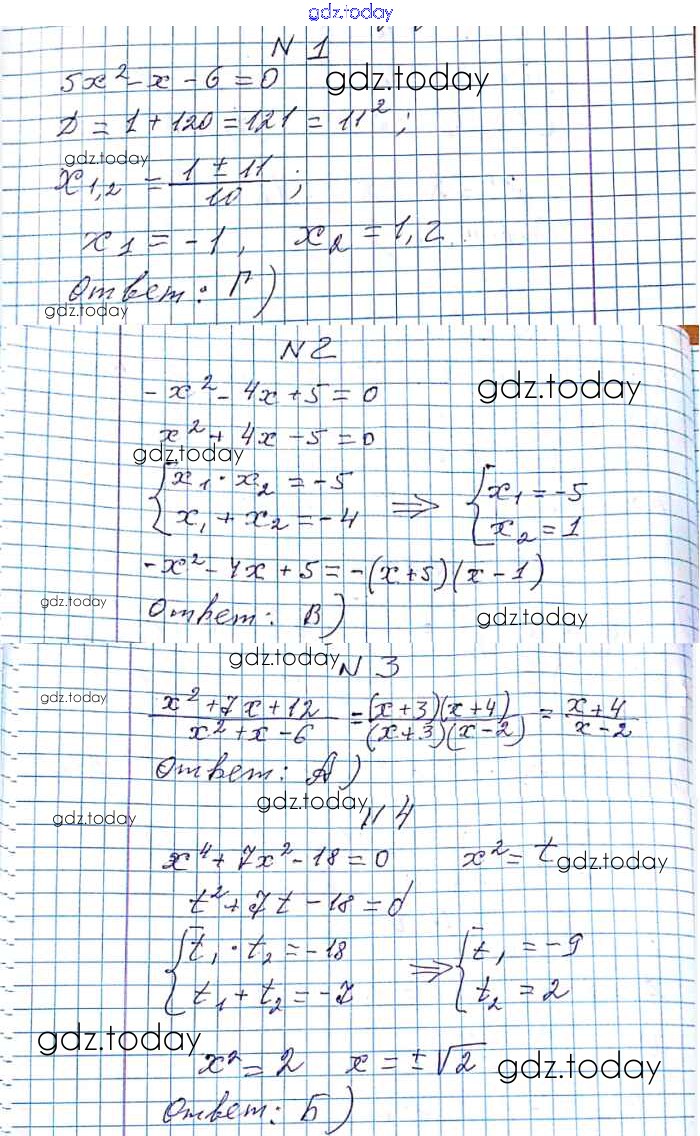 gdz.today
N 1
5x² - x - 6 = 0 gdz.today
D = 1 + 120 = 121 = 11² ;
gdz.today
x₁,₂ = (1 ± 11)/10 ;
x₁ = -1, x₂ = 1,2
Ответ: Г)
gdz.today
N 2
-x² - 4x + 5 = 0 gdz.today
x² + 4x - 5 = 0
gdz.today
{ x₁ · x₂ = -5 ⇒ { x₁ = -5
x₁ + x₂ = -4 x₂ = 1
-x² - 4x + 5 = -(x+5)(x-1)
gdz.today
Ответ: В) gdz.today
gdz.today N 3
gdz.today
(x² + 7x + 12)/(x² + x - 6) = (x+3)(x+4)/(x+3)(x-2) = (x+4)/(x-2)
Ответ: А)
gdz.today
gdz.today N 4
x⁴ + 7x² - 18 = 0 x² = t gdz.today
t² + 7t - 18 = 0
{ t₁ · t₂ = -18 ⇒ { t₁ = -9
t₁ + t₂ = -7 t₂ = 2
gdz.today
x² = 2 x = ±√2 gdz.today
Ответ: Б)